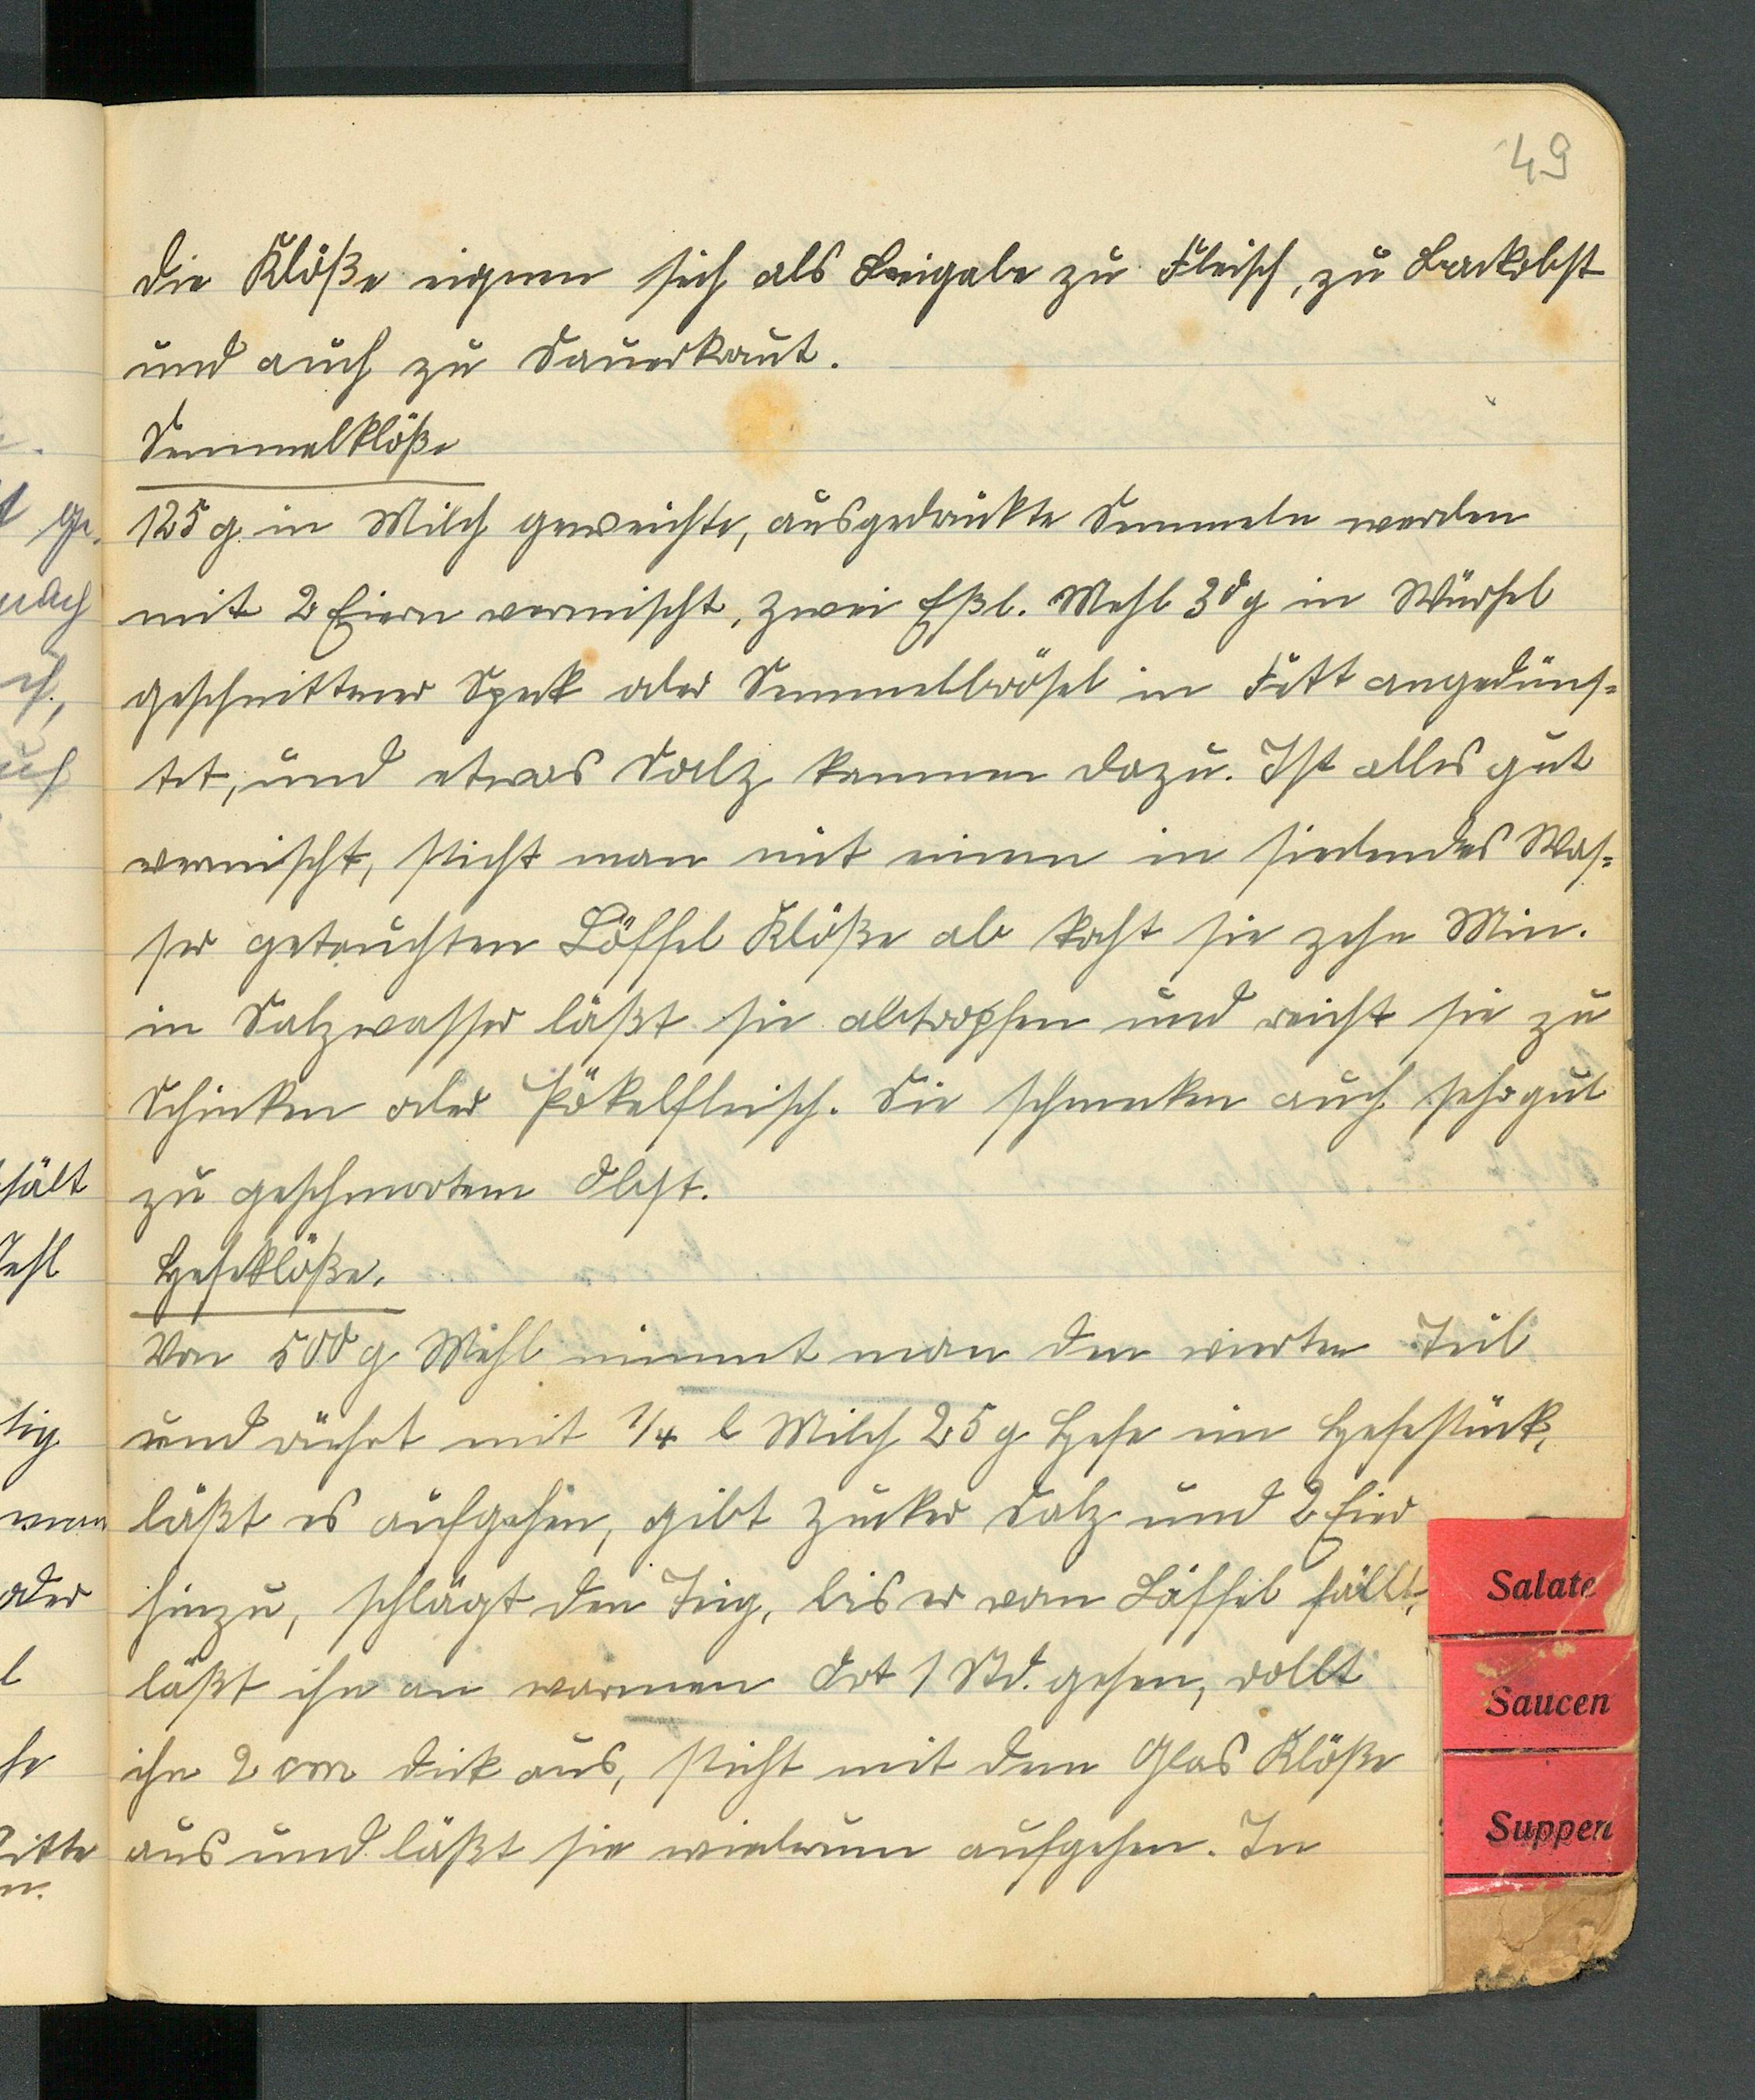 49
die Klöße eignen sich als Beigabe zu Fleisch, zu Backobst
und auch zu Sauerkraut.
Semmelklöße
125 g in Milch geweichte, ausgedrückte Semmeln werden
mit 2 Eiern vermischt, zwei Eßl. Mehl 30 g in Würfel
geschnittener Speck oder Semmelbrösel in Fett angedüns-
tet, und etwas Salz kommen dazu. Ist alles gut
vermischt, sticht man mit einem in siedendes Was-
ser getauchten Löffel Klöße ab kocht sie zehn Min.
in Salzwasser läßt sie abtropfen und reicht sie zu
Schinken oder Pökelfleisch. Sie schmecken auch sehr gut
zu geschmortem Obst.
Hefeklöße.
Von 500 g Mehl nimmt man den vierten Teil
und rührt mit 1/4 l Milch 25 g Hefe ein Hefestück,
läßt es aufgehen, gibt Zucker Salz und 2 Eier
hinzu, schlägt den Teig, bis er vom Löffel fällt,
läßt ihn an warmen Ort 1 Std. gehen, rollt
ihn 2 cm dick aus, sticht mit dem Glas Klöße
aus und läßt sie wiederum aufgehen. In
Salate
Saucen
Suppen